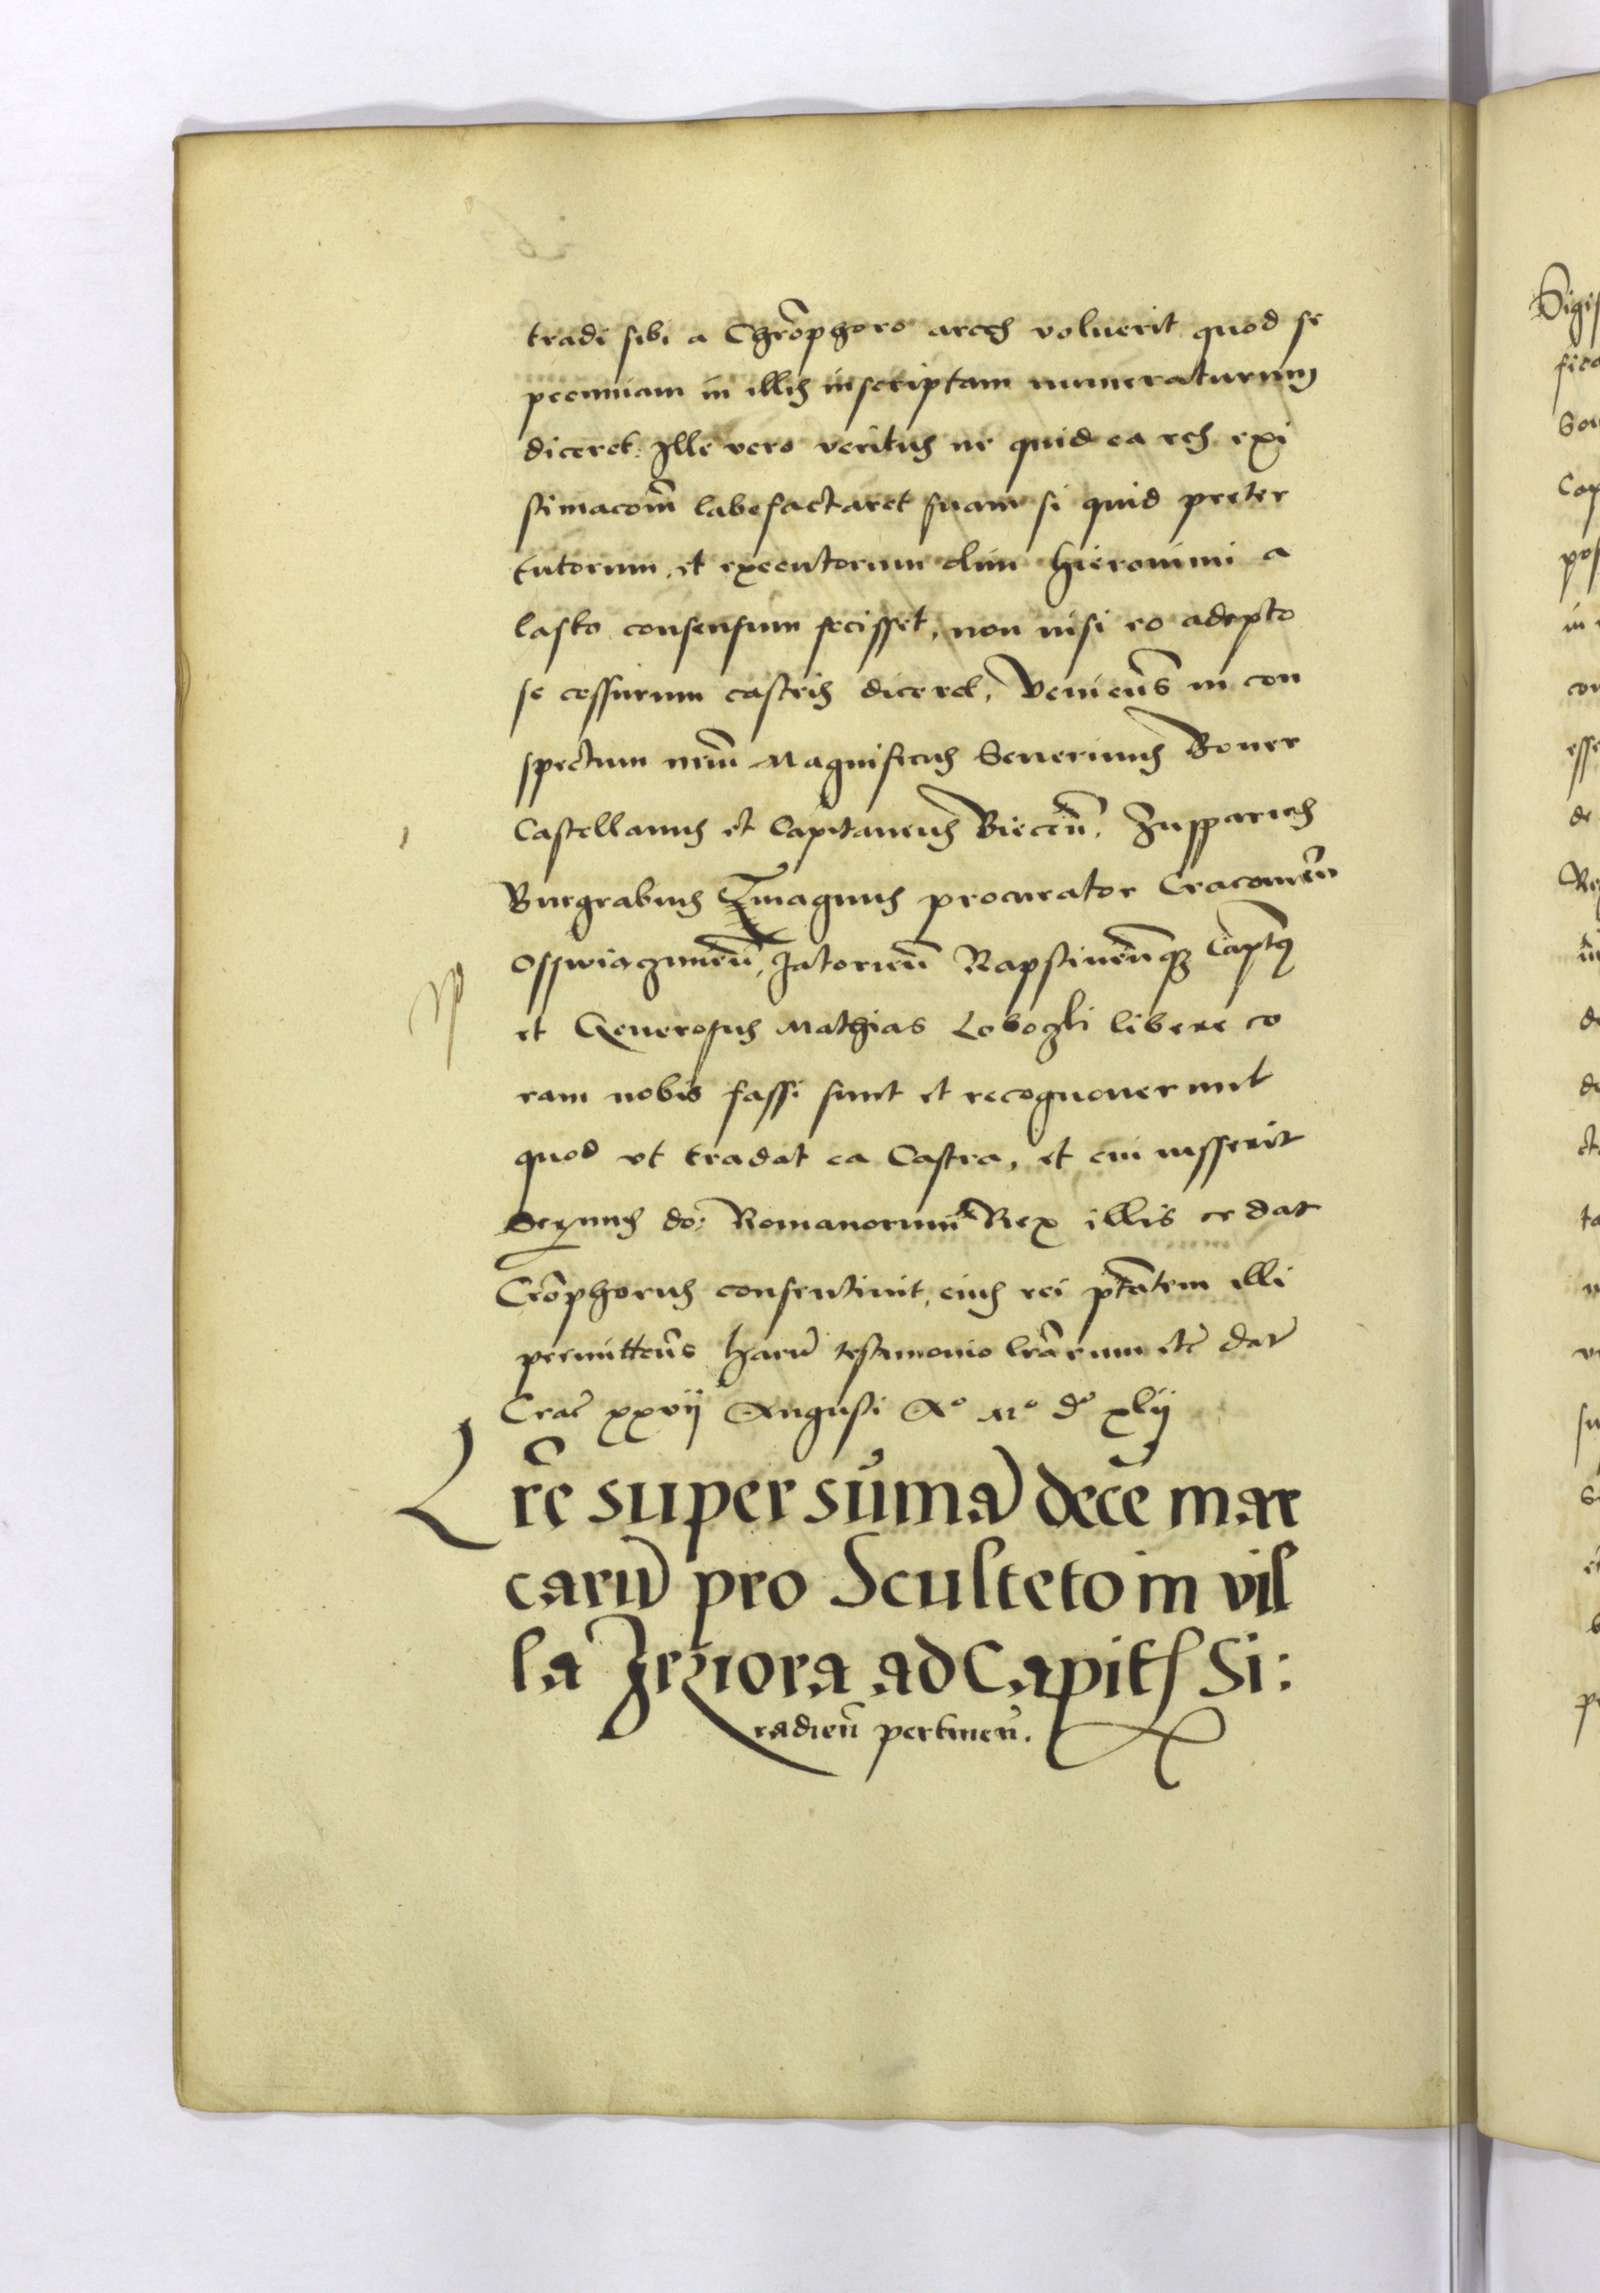 tradi sibi a Chrõphoro arces voluerit quod se
pecuniam in illis inscriptam numeraturum
diceret. Ille vero veritus ne quid ea res exi
stimacom̃ labefactaret suam si quid preter
tutorum, et executorum olim Hieronimi a
lasko consensum fecisset, non nisi eo adepto
se cessurum castris diceret, Veniens in con
spectum nr̃um Magnificus Severinus Boner
Castellanus et Capitaneus Biecen̄, Zupparius
Burgrabius magnus procurator Cracovien̄
Osswiaczimen̄, Zatorien̄ Rapstinen̄qz Captus
et Generosus Mathias Lobozki libere co
ram nobis fassi sunt et recognoverunt
quod vt tradat ea Castra, et cui iusserit
Serꝫmus do: Romanorum Rex illis cedat
Crõphorus consentiuit, eius rei ptãtem illi
permittens harũ testimonio lrãrum etc̃ dat̃
Crac̃ xxvij Augusti A° M° d° xlij
Lrẽ super sũma decẽ mar
carũ pro Sculteto in vil
la Jeziora ad Capit̃ Si:
radien̄ pertinen̄.